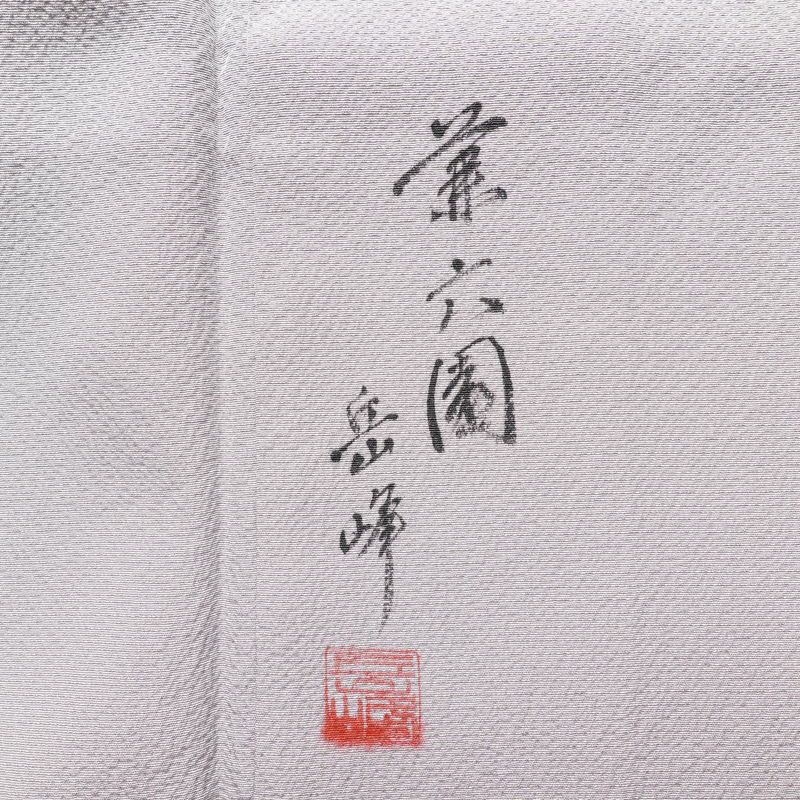 兼六園
岳峰